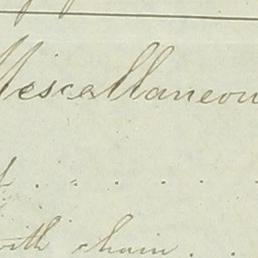 Miscellaneou
with chain . .